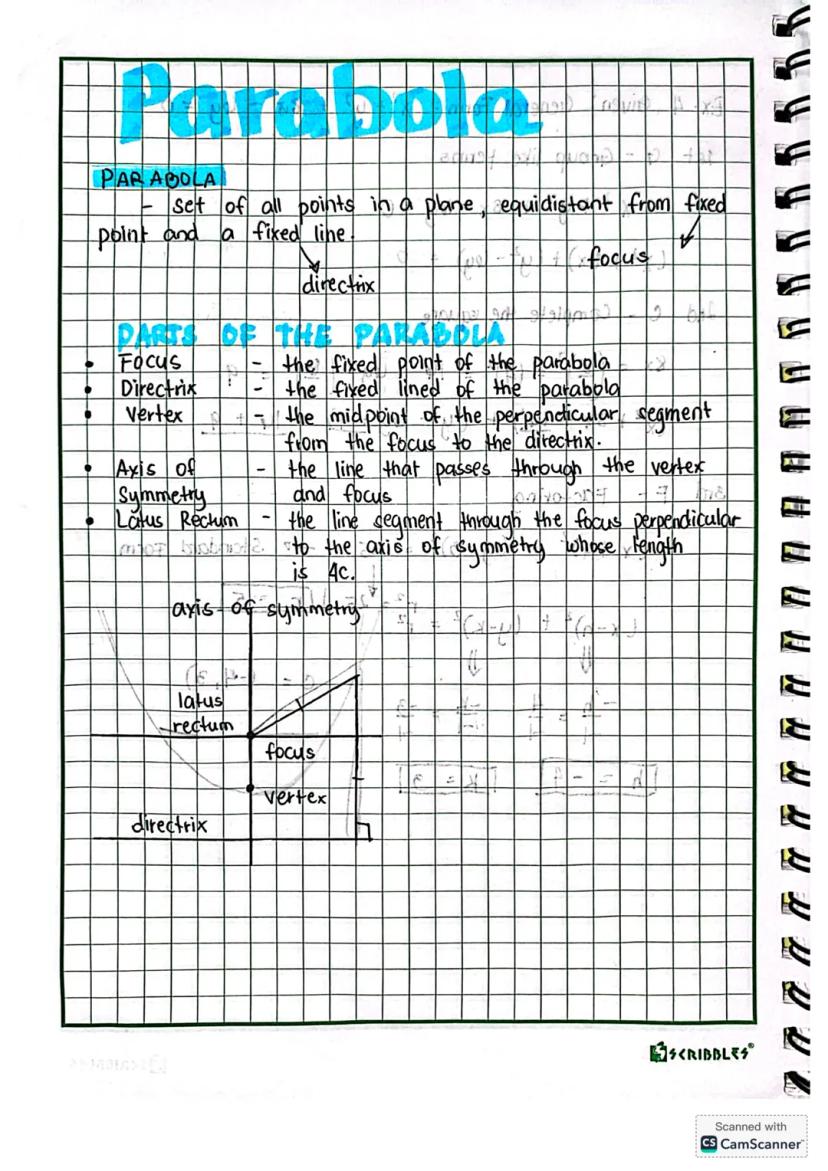 Parabola
PARABOLA
- set of all points in a plane, equidistant from fixed
point and a fixed line.
focus
directrix
PARTS OF THE PARABOLA
• Focus - the fixed point of the parabola
• Directrix - the fixed lined of the parabola
• Vertex - the midpoint of the perpendicular segment
from the focus to the directrix.
• Axis of - the line that passes through the vertex
Symmetry and focus
• Latus Rectum - the line segment through the focus perpendicular
to the axis of symmetry whose length
is 4c.
axis of symmetry
latus
rectum
focus
vertex
directrix
SCRIBBLES®
Scanned with
CS CamScanner